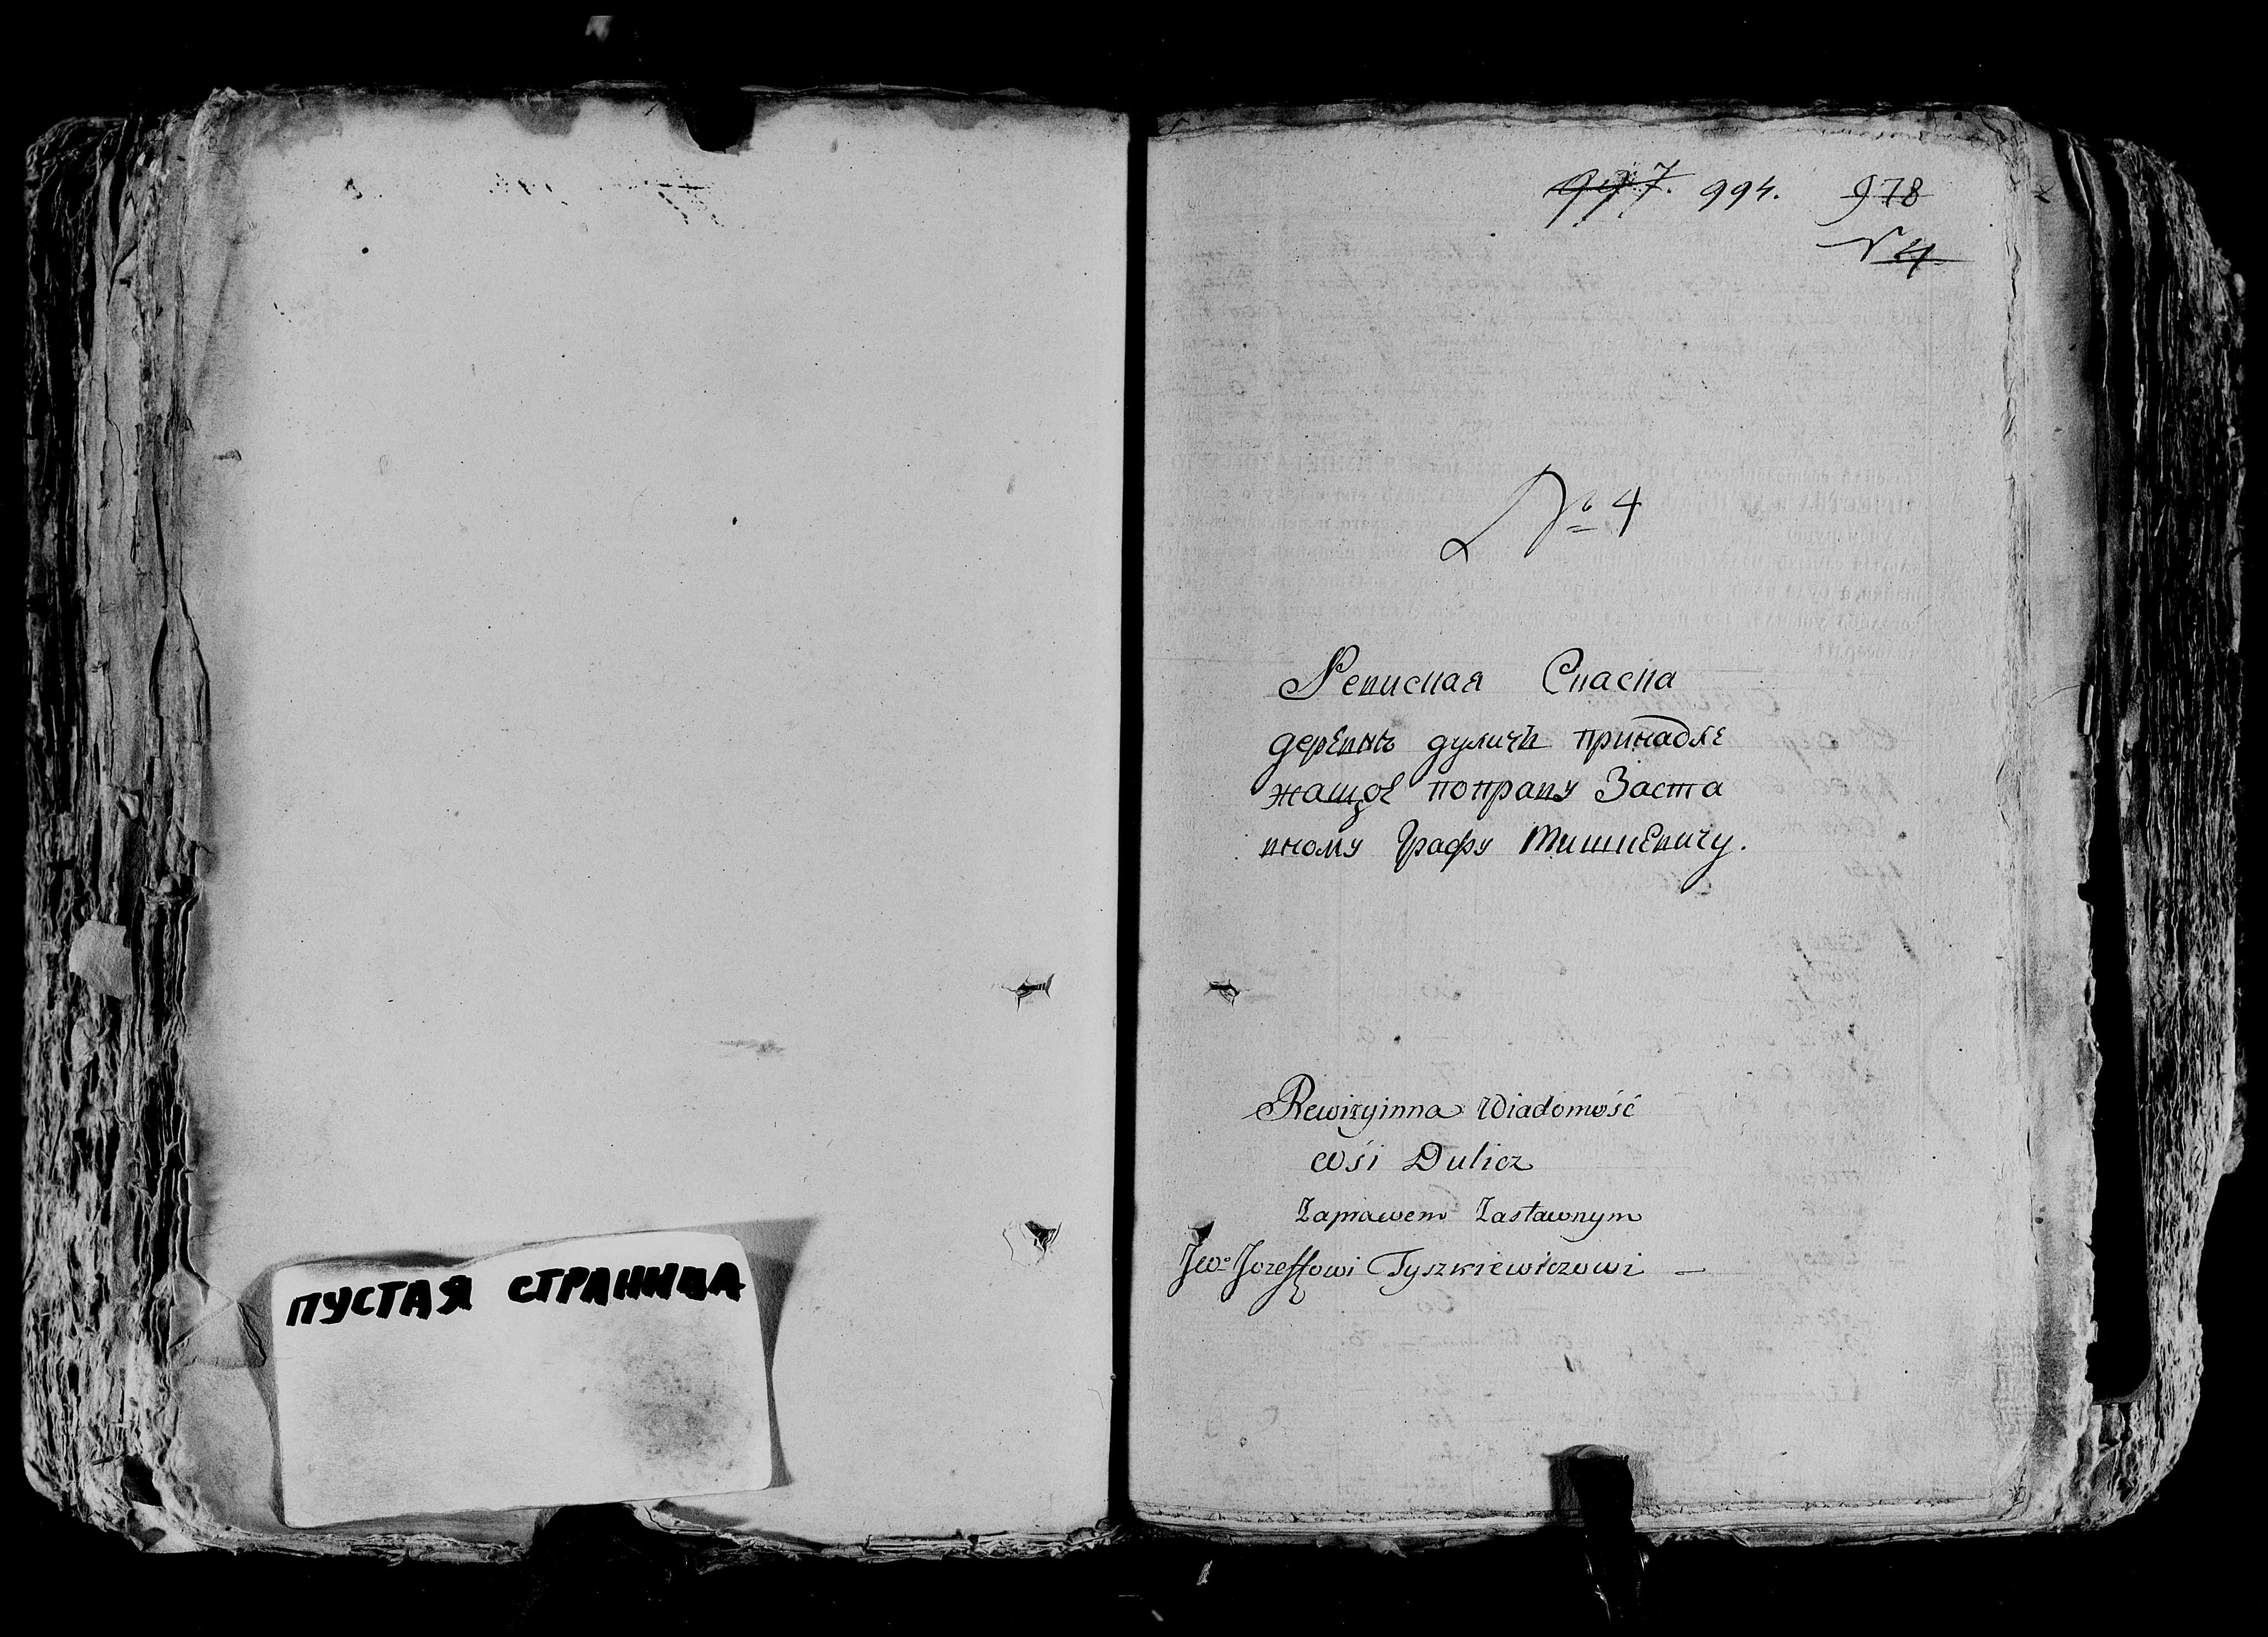 ПУСТАЯ СТРАНИЦА
997. 994. 978
N 4
№ 4
Ревиская Скаска
деревнѣ дуличи принадле
жащое поправу Заста
вному Графу Тишкевичу.
Rewizyinna Wiadomość
wśi Dulicz
Zaprawem Zastawnym
JWo Jozeffowi Tyszkiewiczowi —